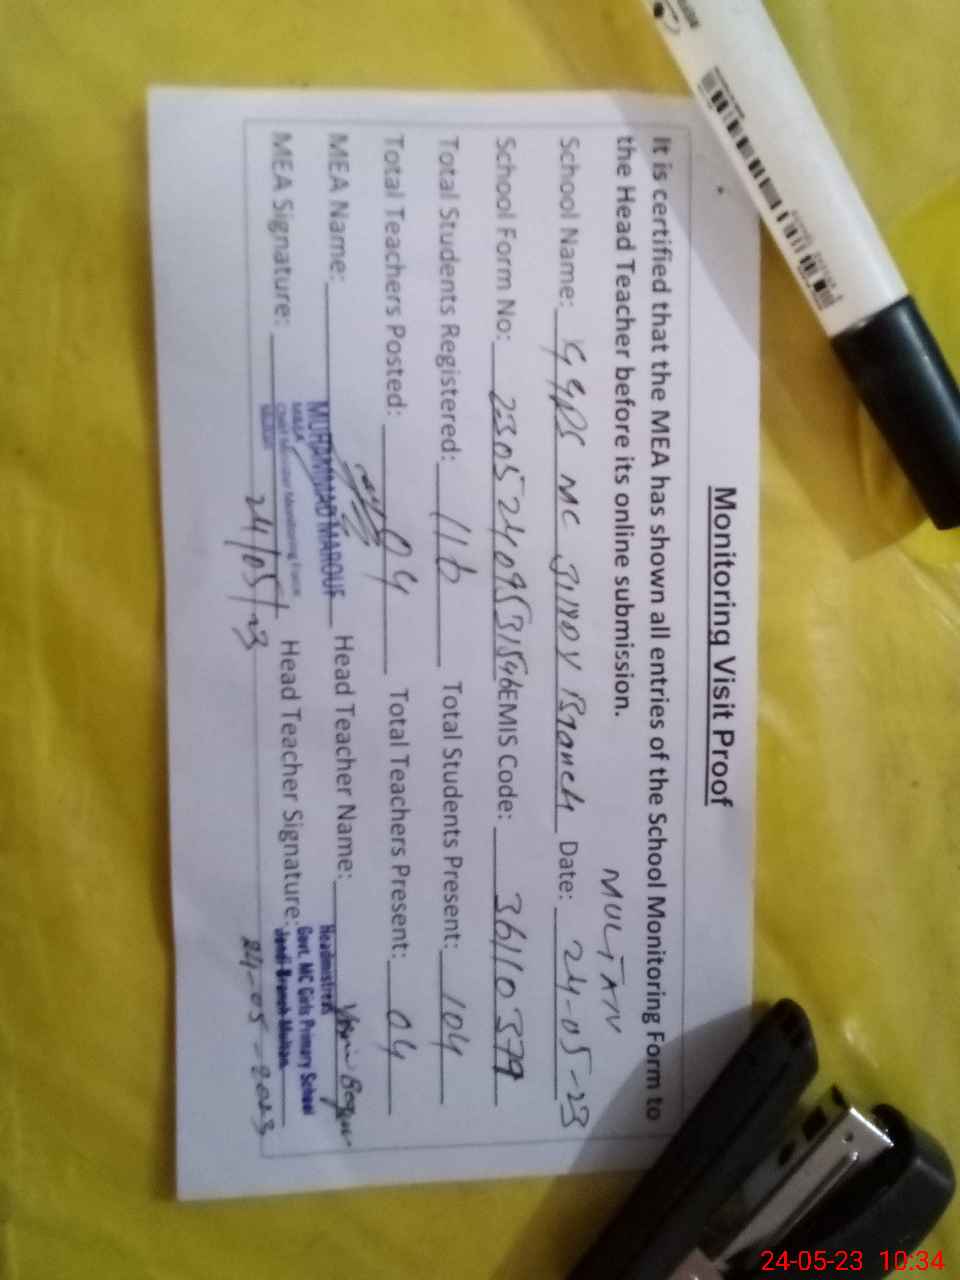 Monitoring Visit Proof
It is certified that the MEA has shown all entries of the School Monitoring Form to
the Head Teacher before its online submission.
MULTAN
School Name: GGPS MC Branch Date: 24-05-23
School Form No: EMIS Code: 36110379
Total Students Registered: 116 Total Students Present: 104
Total Teachers Posted: 04 Total Teachers Present: 04
MEA Name: MUHAMMAD MAROUF Head Teacher Name:
MEA Signature: Head Teacher Signature:
M&EA
Chief Minister Monitoring Force
Multan
24/05/23
Headmistress
Govt. MC Girls Primary School
Branch Multan
24-05-2023
24-05-23 10:34